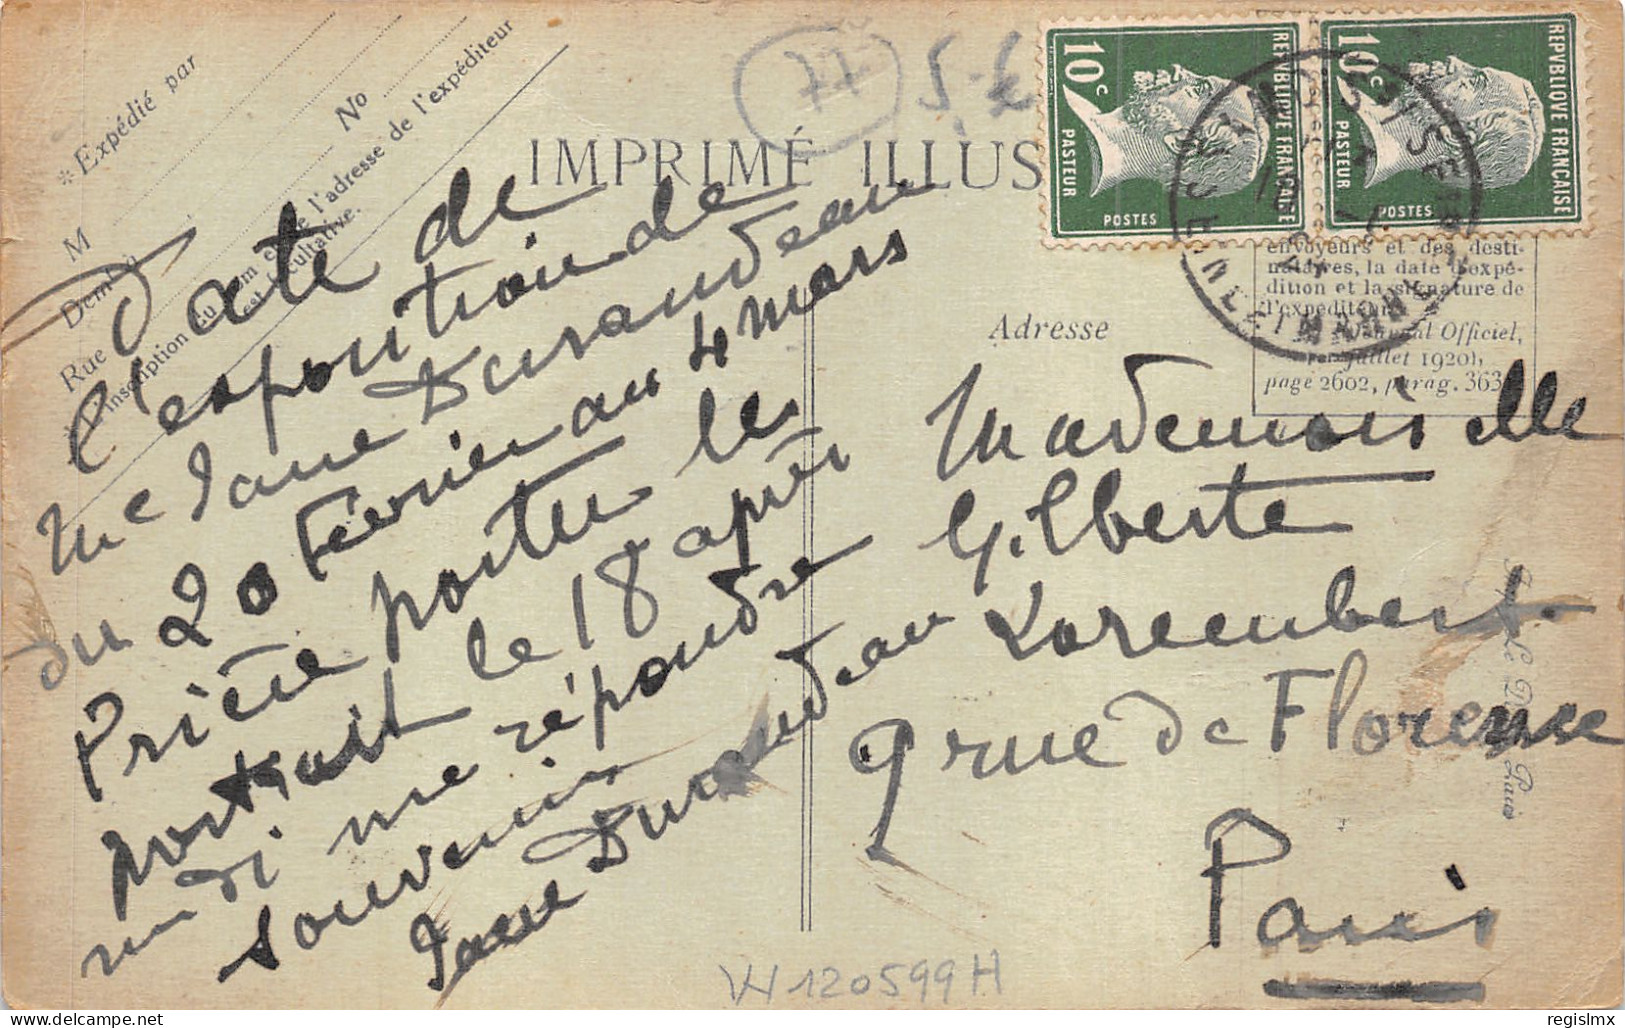 *Expédié par
M
Demt à
Rue No
L'inscription du nom et de l'adresse de l'expéditeur
est facultative.
IMPRIMÉ ILLUS
77
5.€
REPVBLIQVE FRANCAISE
10c
PASTEUR
POSTES
REPVBLIQVE FRANCAISE
10c
PASTEUR
POSTES
envoyeurs et des desti-
nataires, la date d'expé-
dition et la signature de
l'expéditeur.
Journal Officiel,
juillet 1920),
page 2602, parag. 363
Adresse
Date de
l'exposition de
Me Jane Durandeau
du 20 Février au 4 Mars
Prière porter le
portrait le 18 après
midi me répondre
souvenirs
Jane Durandeau
Mademoiselle
Gilberte
9 rue de Florence
Paris
VH120599H
Delcampe.net
regislmx